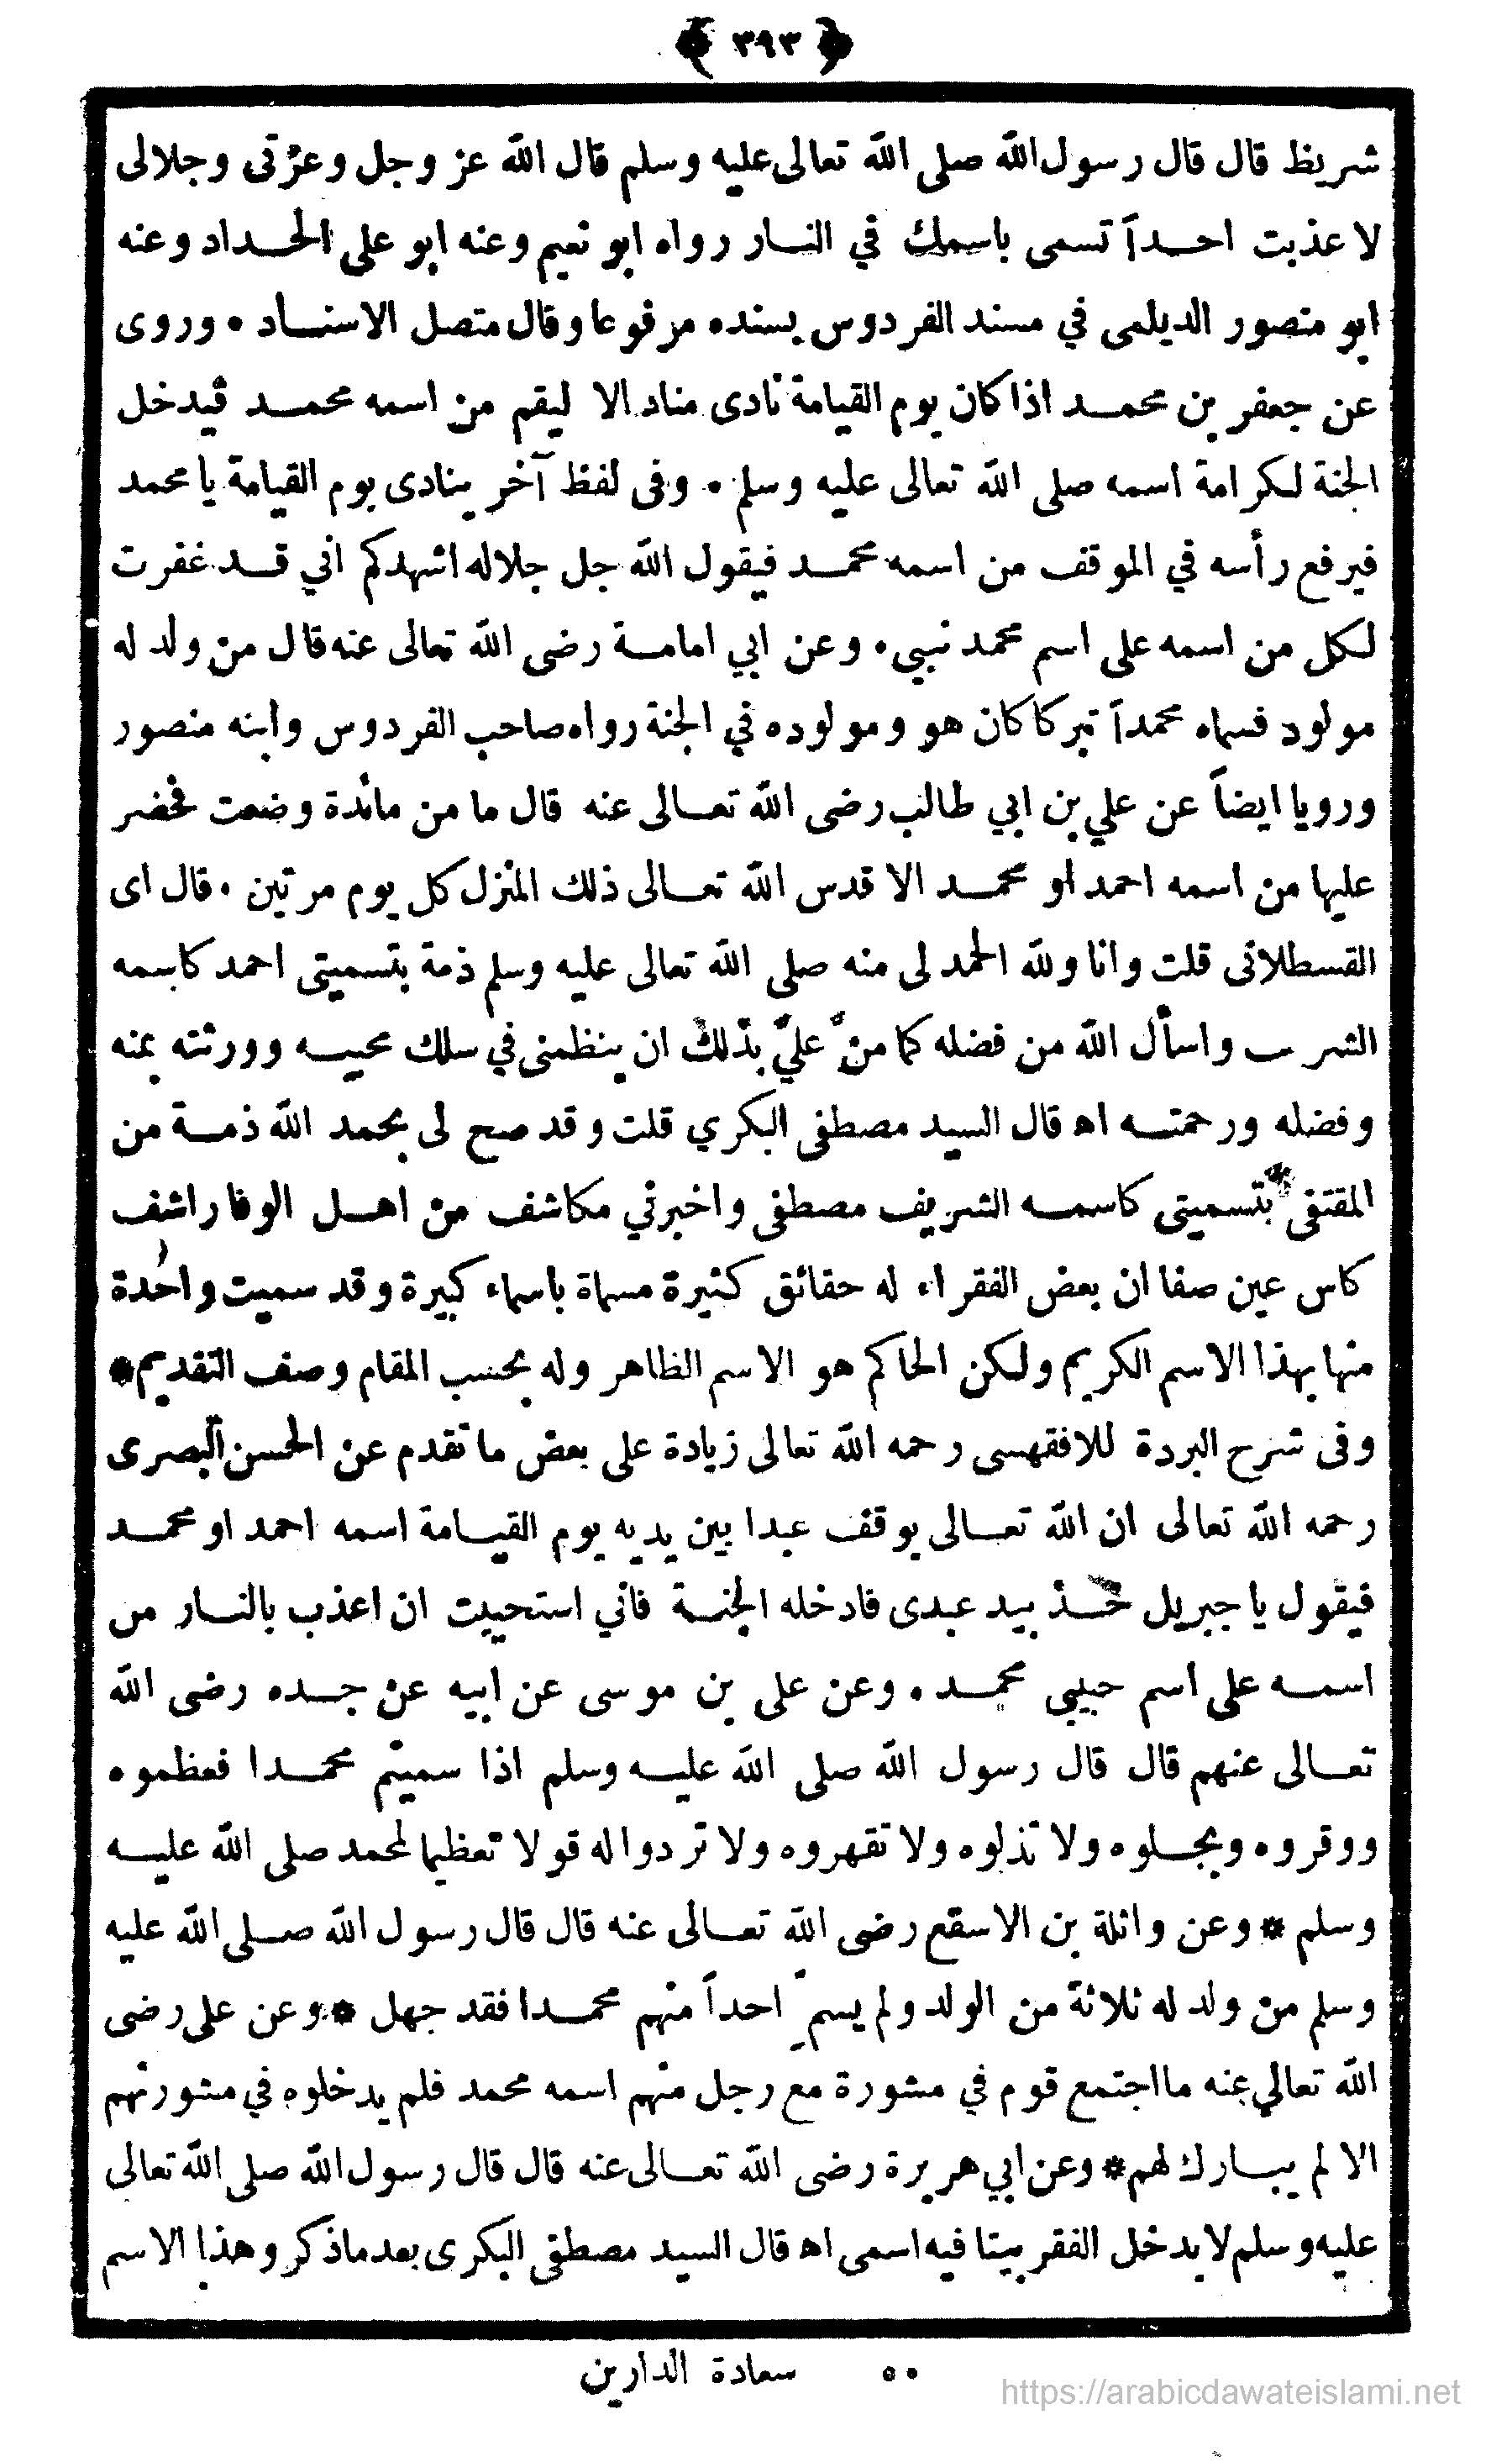 ﴿ ٣٩٣ ﴾
شريط قال قال رسول الله صلى الله تعالى عليه وسلم قال الله عز وجل وعزتى وجلالى
لا عذبت احداً تسمى باسمك في النار رواه ابو نعيم وعنه ابو على الحداد وعنه
ابو منصور الديلمى في مسند الفردوس بسنده مرفوعا وقال متصل الاسناد ٠ وروى
عن جعفر بن محمد اذا كان يوم القيامة نادى مناد الا ليقم من اسمه محمد فيدخل
الجنة لكرامة اسمه صلى الله تعالى عليه وسلم ٠ وفى لفظ آخر ينادى يوم القيامة يا محمد
فيرفع رأسه في الموقف من اسمه محمد فيقول الله جل جلاله اشهدكم اني قد غفرت
لكل من اسمه على اسم محمد نبيي ٠ وعن ابي امامة رضى الله تعالى عنه قال من ولد له
مولود فسماه محمداً تبركا كان هو ومولوده في الجنة رواه صاحب الفردوس وابنه منصور
ورويا ايضاً عن علي بن ابي طالب رضى الله تعالى عنه قال ما من مائدة وضعت فحضر
عليها من اسمه احمد او محمد الا قدس الله تعالى ذلك المنزل كل يوم مرتين ٠ قال اى
القسطلانى قلت وانا ولله الحمد لى منه صلى الله تعالى عليه وسلم ذمة بتسميتى احمد كاسمه
واسأل الله من فضله كما منّ عليّ بذلك ان ينظمنى في سلك محبيه وورثته بمنه
وفضله ورحمته اه قال السيد مصطفى البكري قلت وقد صح لى بحمد الله ذمة من
المقتفى بتسميتى كاسمه الشريف مصطفى واخبرني مكاشف من اهل الوفا راشف
كاس عين صفا ان بعض الفقراء له حقائق كثيرة مسماة باسماء كبيرة وقد سميت واحدة
منها بهذا الاسم الكريم ولكن الحاكم هو الاسم الظاهر وله بحسب المقام وصف التقديم *
وفى شرح البردة للافقهسى رحمه الله تعالى زيادة على بعض ما تقدم عن الحسن البصرى
رحمه الله تعالى ان الله تعالى يوقف عبدا بين يديه يوم القيامة اسمه احمد او محمد
فيقول يا جبريل خذ بيد عبدى فادخله الجنة فاني استحييت ان اعذب بالنار من
اسمه على اسم حبيبي محمد ٠ وعن على بن موسى عن ابيه عن جده رضى الله
تعالى عنهم قال قال رسول الله صلى الله عليه وسلم اذا سميتم محمدا فعظموه
ووقروه وبجلوه ولا تذلوه ولا تقهروه ولا تردوا له قولا تعظيما لمحمد صلى الله عليه
وسلم * وعن واثلة بن الاسقع رضى الله تعالى عنه قال قال رسول الله صلى الله عليه
وسلم من ولد له ثلاثة من الولد ولم يسمِّ احداً منهم محمدا فقد جهل * وعن على رضى
الله تعالي عنه ما اجتمع قوم في مشورة مع رجل منهم اسمه محمد فلم يدخلوه في مشورتهم
الا لم يبارك لهم * وعن ابي هريرة رضى الله تعالى عنه قال قال رسول الله صلى الله تعالى
عليه وسلم لا يدخل الفقر بيتا فيه اسمى اه قال السيد مصطفى البكرى بعد ما ذكر وهذا الاسم
٥٠ سعادة الدارين
https://arabicdawateislami.net